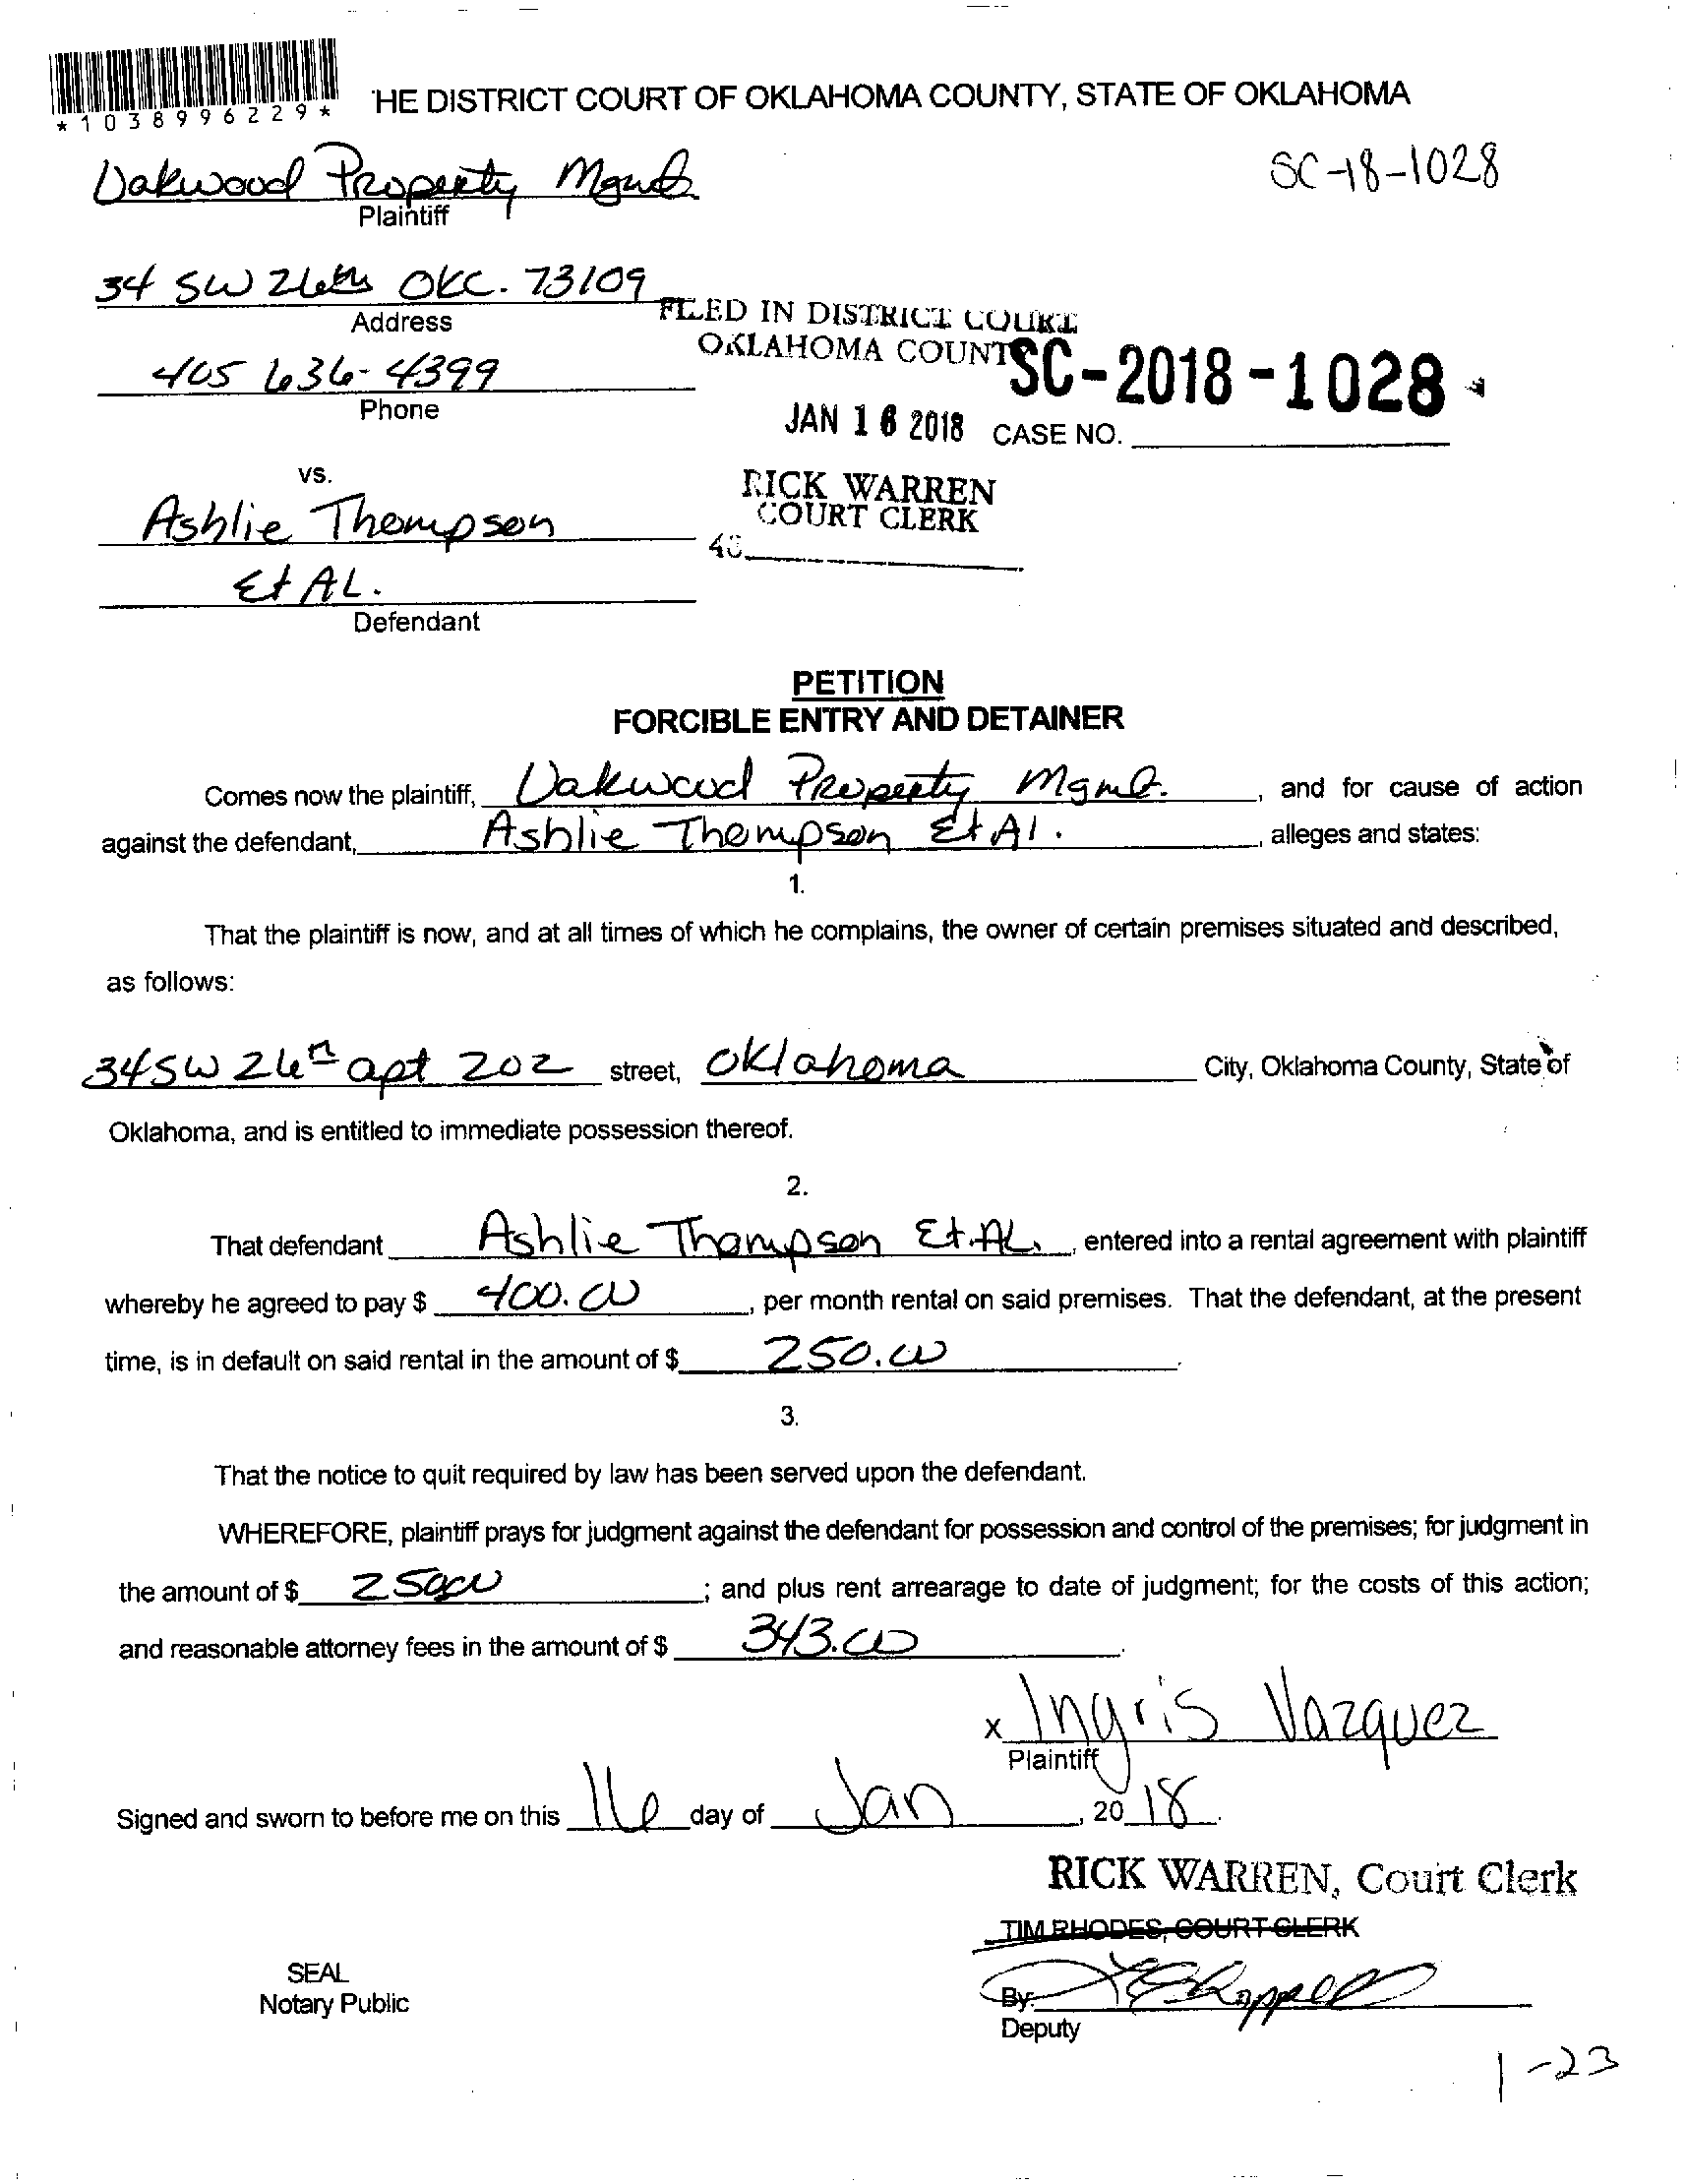 *1038996229*
HE DISTRICT COURT OF OKLAHOMA COUNTY, STATE OF OKLAHOMA
Oakwood Property Mgmt
SC-18-1028
Plaintiff
34 SW 26th OKC. 73109
Address
FILED IN DISTRICT COURT
OKLAHOMA COUNTY
405 636-4399
SC-2018-1028
Phone
JAN 16 2018 CASE NO.
vs.
RICK WARREN
COURT CLERK
Ashlie Thompson
Et AL.
Defendant
PETITION
FORCIBLE ENTRY AND DETAINER
Comes now the plaintiff, Oakwood Property Mgmt. , and for cause of action
against the defendant, Ashlie Thompson Et Al. , alleges and states:
1.
That the plaintiff is now, and at all times of which he complains, the owner of certain premises situated and described,
as follows:
34 SW 26th apt 202 street, Oklahoma City, Oklahoma County, State of
Oklahoma, and is entitled to immediate possession thereof.
2.
That defendant Ashlie Thompson Et. AL. , entered into a rental agreement with plaintiff
whereby he agreed to pay $ 400.00 , per month rental on said premises. That the defendant, at the present
time, is in default on said rental in the amount of $ 250.00 .
3.
That the notice to quit required by law has been served upon the defendant.
WHEREFORE, plaintiff prays for judgment against the defendant for possession and control of the premises; for judgment in
the amount of $ 250.00 ; and plus rent arrearage to date of judgment; for the costs of this action;
and reasonable attorney fees in the amount of $ 343.00 .
x Ingris Vazquez
Plaintiff
Signed and sworn to before me on this 16 day of Jan , 20 18 .
RICK WARREN, Court Clerk
TIM RHODES, COURT CLERK
SEAL
Notary Public
By:
Deputy
1-23